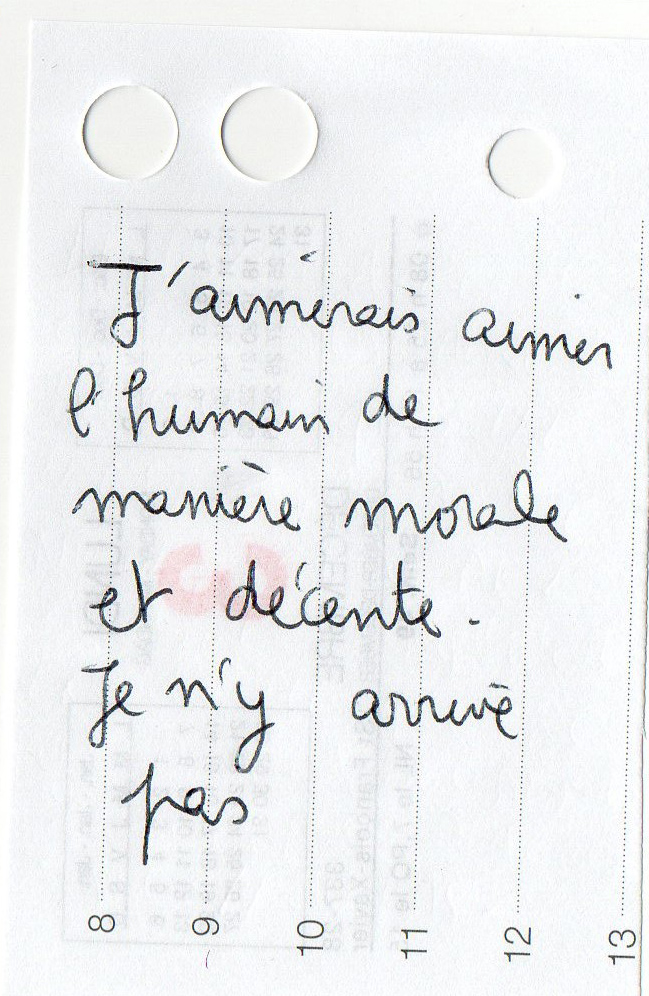 J'aimerais aimer
l'humain de
manière morale
et décente.
Je n'y arrive
pas
8
9
10
11
12
13